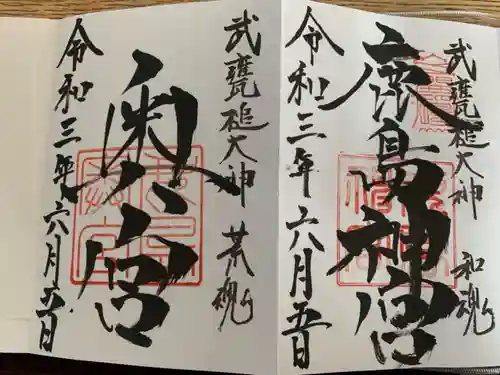 武甕槌大神 和魂
鹿島神宮
令和三年六月五日
武甕槌大神 荒魂
奥宮
令和三年六月五日